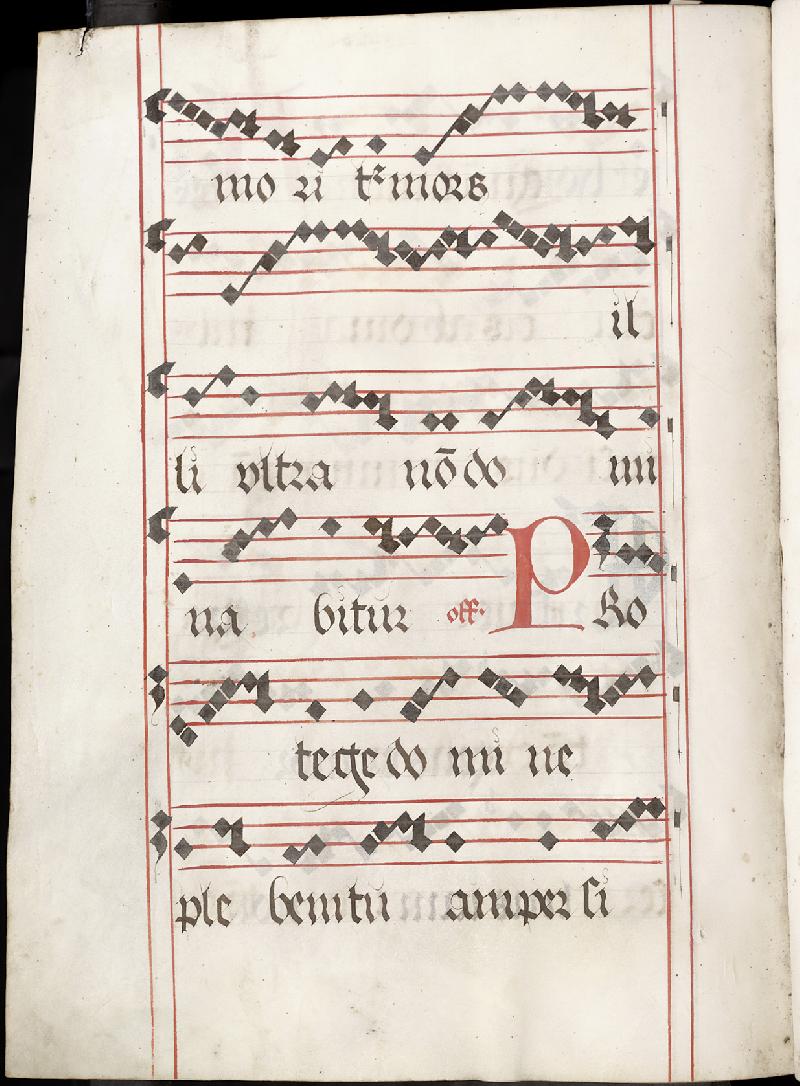 mo ri tᷣ mors
il
li vltra nō do mi
na bitur off. PRo
tege do mi ne
ple bem tu am per si